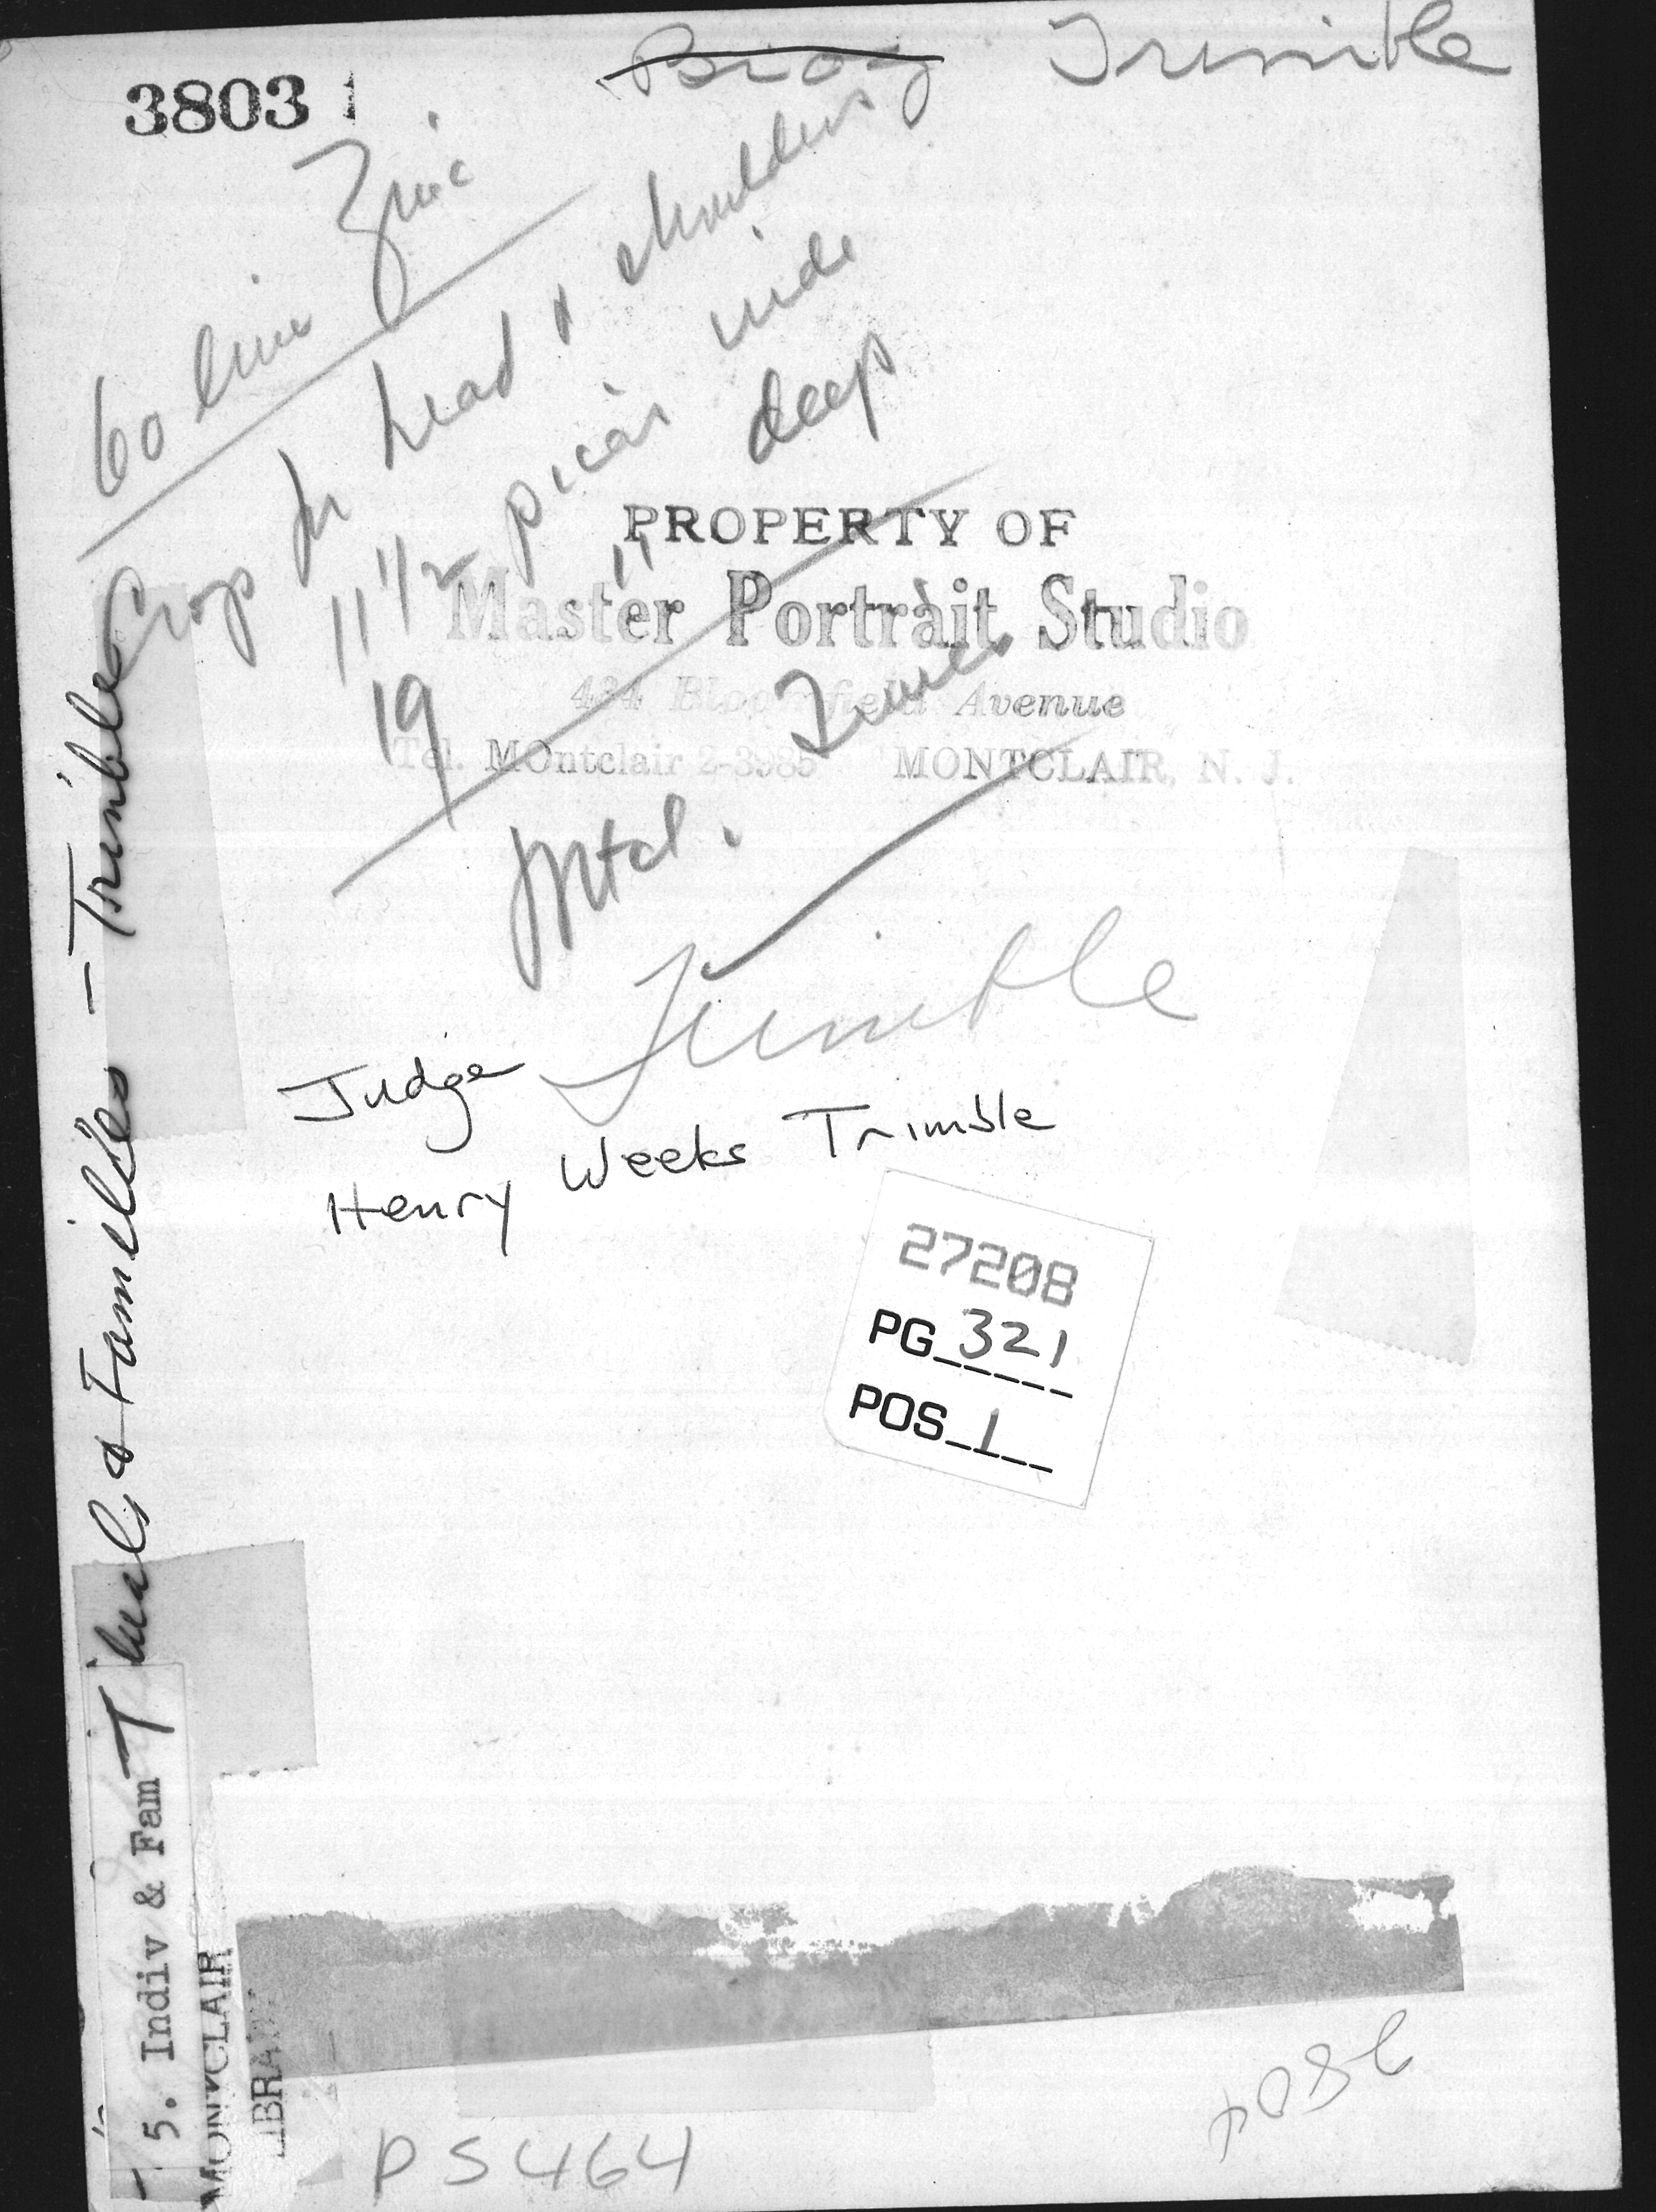 Biog Trimble
3803
60 line Zinc
Crop to head & shoulders
11 1/2 picas wide
19 " deep
PROPERTY OF
Master Portrait Studio
484 Bloomfield Avenue
Tel. MOntclair 2-3985 MONTCLAIR, N. J.
Mtcl. Times
Trimble
Judge
Henry Weeks Trimble
27208
PG 321
POS 1
Individuals & Families - Trimble
5. Indiv & Fam T
MONTCLAIR
LIBRA
PS464